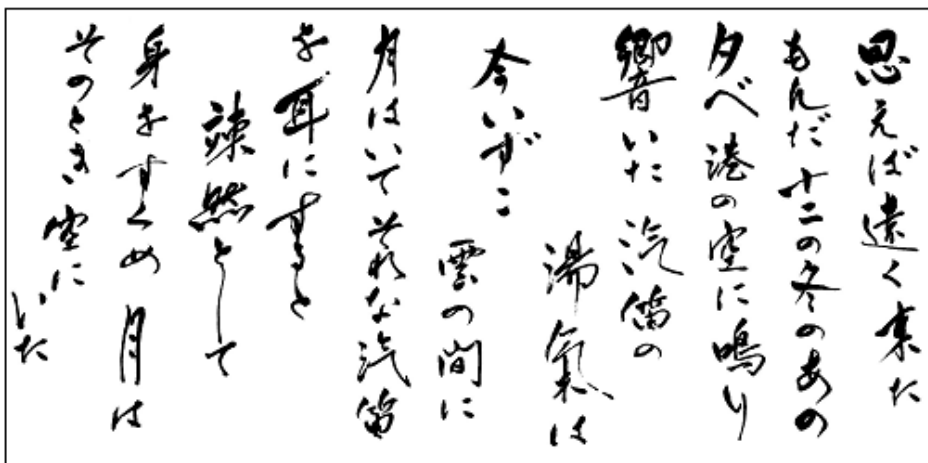 思えば遠く来た
もんだ 十二の冬のあの
夕べ 港の空に鳴り
響いた 汽笛の
湯氣は
今いずこ
雲の間に
月はいて それな汽笛
を耳にすると
竦然として
身をすくめ 月は
そのとき 空に
いた